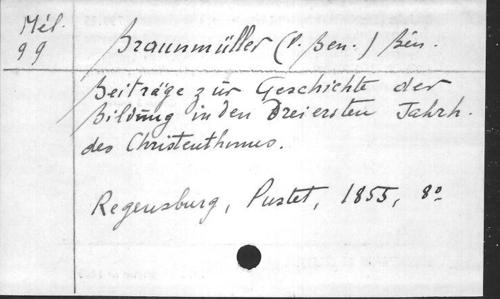 Mél.
99
Braunmüller (P. Ben.) Bén.
Beiträge zur Geschichte der
Bildung in den Drei ersten Jahrh.
des Christenthums.
Regensburg, Pustet, 1855, 8º